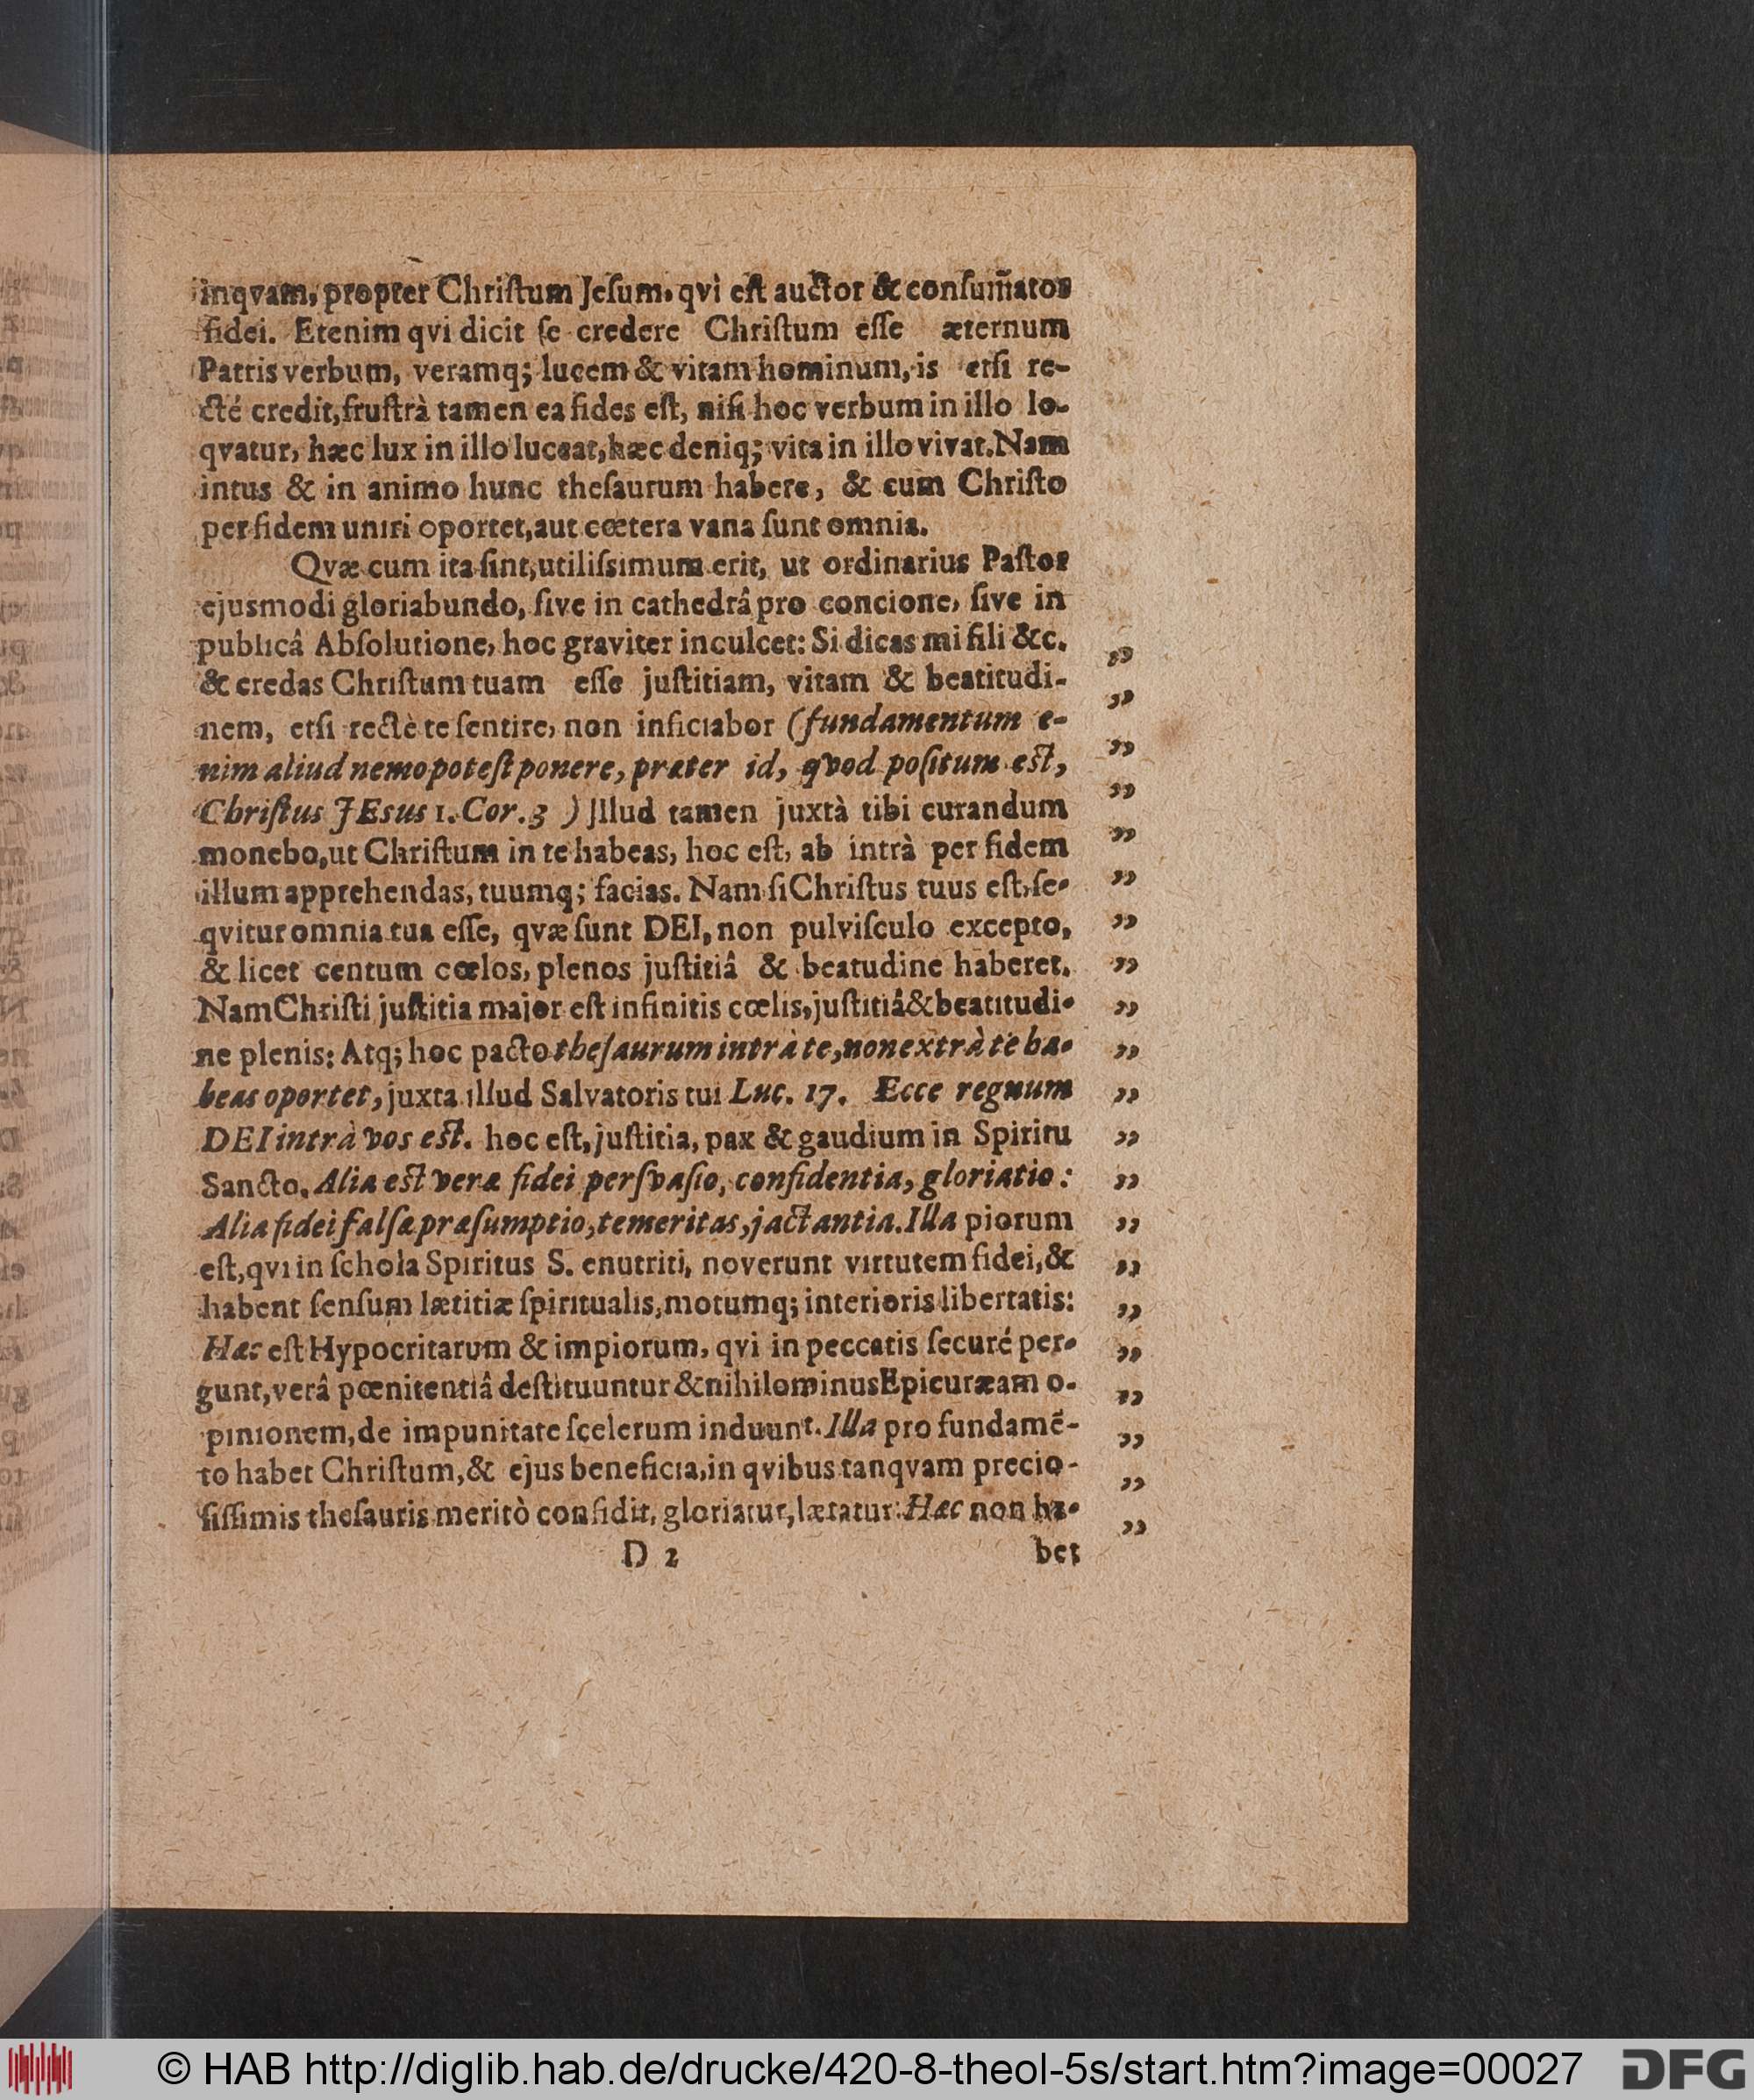 inqvam, propter Chriſtum Jeſum, qvi eſt auctor & conſum̃ator
fidei. Etenim qvi dicit ſe credere Chriſtum eſſe æternum
Patris verbum, veramq; lucem & vitam hominum, is etſi re-
cté credit, fruſtrà tamen ea fides eſt, niſi hoc verbum in illo lo-
qvatur, hæc lux in illo luceat, hæc deniq; vita in illo vivat. Nam
intus & in animo hunc theſaurum habere, & cum Chriſto
per fidem uniri oportet, aut cœtera vana ſunt omnia.
Qvæ cum ita ſint, utiliſsimum erit, ut ordinarius Paſtor
ejusmodi gloriabundo, ſive in cathedrâ pro concione, ſive in
publicâ Abſolutione, hoc graviter inculcet: Si dicas mi fili &c. ”
& credas Chriſtum tuam eſſe juſtitiam, vitam & beatitudi- ”
nem, etſi rectè te ſentire, non inficiabor (fundamentum e- ”
nim aliud nemo poteſt ponere, præter id, qvod poſitum eſt, ”
Chriſtus JEsus 1. Cor. 3 ) Jllud tamen juxtà tibi curandum ”
monebo, ut Chriſtum in te habeas, hoc eſt, ab intrà per fidem ”
illum apprehendas, tuumq; facias. Nam ſi Chriſtus tuus eſt, ſe- ”
qvitur omnia tua eſſe, qvæ ſunt DEI, non pulviſculo excepto, ”
& licet centum cœlos, plenos juſtitiâ & beatudine haberet. ”
Nam Chriſti juſtitia major eſt infinitis cœlis, juſtitiâ & beatitudi- ”
ne plenis: Atq; hoc pacto theſaurum intrà te, non extrà te ha- ”
beas oportet, juxta illud Salvatoris tui Luc. 17. Ecce regnum ”
DEI intrà vos eſt. hoc eſt, juſtitia, pax & gaudium in Spiritu ”
Sancto. Alia eſt veræ fidei perſvaſio, confidentia, gloriatio: ”
Alia fidei falſæ præſumptio, temeritas, jactantia. Illa piorum ”
eſt, qvi in ſchola Spiritus S. enutriti, noverunt virtutem fidei, & ”
habent ſenſum lætitiæ ſpiritualis, motumq; interioris libertatis: ”
Hæc eſt Hypocritarum & impiorum, qvi in peccatis ſecuré per- ”
gunt, verâ pœnitentiâ deſtituuntur & nihilominus Epicuræam o- ”
pinionem, de impunitate ſcelerum induunt. Illa pro fundamẽ- ”
to habet Chriſtum, & ejus beneficia, in qvibus tanqvam precio- ”
ſiſſimis theſauris meritò confidit, gloriatur, lætatur: Hæc non ha- ”
D 2 bet
© HAB http://diglib.hab.de/drucke/420-8-theol-5s/start.htm?image=00027 DFG